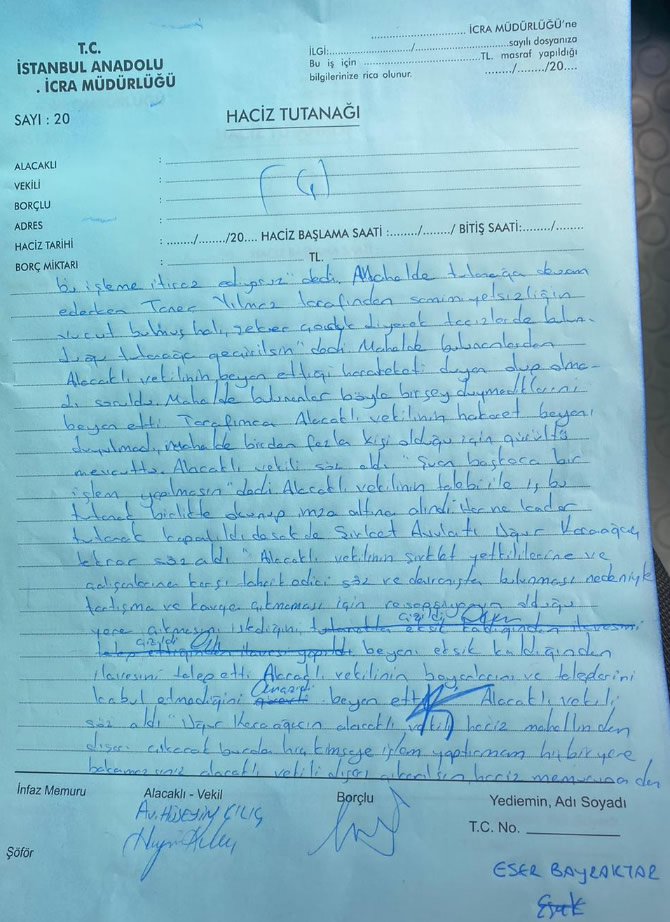 ............................ İCRA MÜDÜRLÜĞÜ'ne
T.C.
İSTANBUL ANADOLU
. İCRA MÜDÜRLÜĞÜ
İLGİ:................../....................sayılı dosyanıza
Bu iş için ..........................TL. masraf yapıldığı
bilgilerinize rica olunur. ....../....../20....
SAYI : 20
HACİZ TUTANAĞI
ALACAKLI :
VEKİLİ :
BORÇLU :
ADRES :
HACİZ TARİHİ : ......./......./20.... HACİZ BAŞLAMA SAATİ :......./....... / BİTİŞ SAATİ:......./.......
BORÇ MİKTARI : TL.
bu işleme itiraz ediyoruz" dedi. Mahalde tutanağa devam
ederken Taner Yılmaz tarafından samimiyetsizliğin
vücut bulmuş hali, diyerek tacizlerde bulun-
duğu tutanağa geçirilsin" dedi. Mahalde bulunanlardan
Alacaklı vekilinin beyan ettiği hareketi duyan olup olma-
dı soruldu. Mahalde bulunanlar böyle bir şey duymadıklarını
beyan etti. Tarafımca Alacaklı vekilinin hakaret beyanı
duyulmadı, mahalde birden fazla kişi olduğu için gürültü
mevcuttu. Alacaklı vekili söz aldı "Şuan başkaca bir
işlem yapılmasın" dedi. Alacaklı vekilinin talebi ile iş bu
tutanak birlikte okunup imza altına alındı. Her ne kadar
tutanak kapatıldı desek de Şirket Avukatı Uğur Karaağaç
tekrar söz aldı "Alacaklı vekilinin şirket yetkililerine ve
çalışanlarına karşı tahrik edici söz ve davranışta bulunması nedeniyle
tartışma ve kavga çıkmaması için resepsiyonun olduğu
yere çıkmasını istediğini, tutanakta eksik kaldığından ilavesini
çizildi
talep ettiğinden ilavesi yapıldı beyanı eksik kaldığından
çizildi
ilavesini talep etti. Alacaklı vekilinin beyanlarını ve taleplerini
kabul etmediğini beyan etti Alacaklı vekili
söz aldı "Uğur Karaağacın alacaklı vekili haciz mahallinden
dışarı çıkacak burada hiç kimseye işlem yaptırmam hiç bir yere
bakamazsınız alacaklı vekili dışarı çıkarılsın haciz memurunadan
İnfaz Memuru
Alacaklı - Vekil
Borçlu
Yediemin, Adı Soyadı
Av. HÜSEYİN ÇILIÇ
T.C. No.
Şöför
ESER BAYRAKTAR